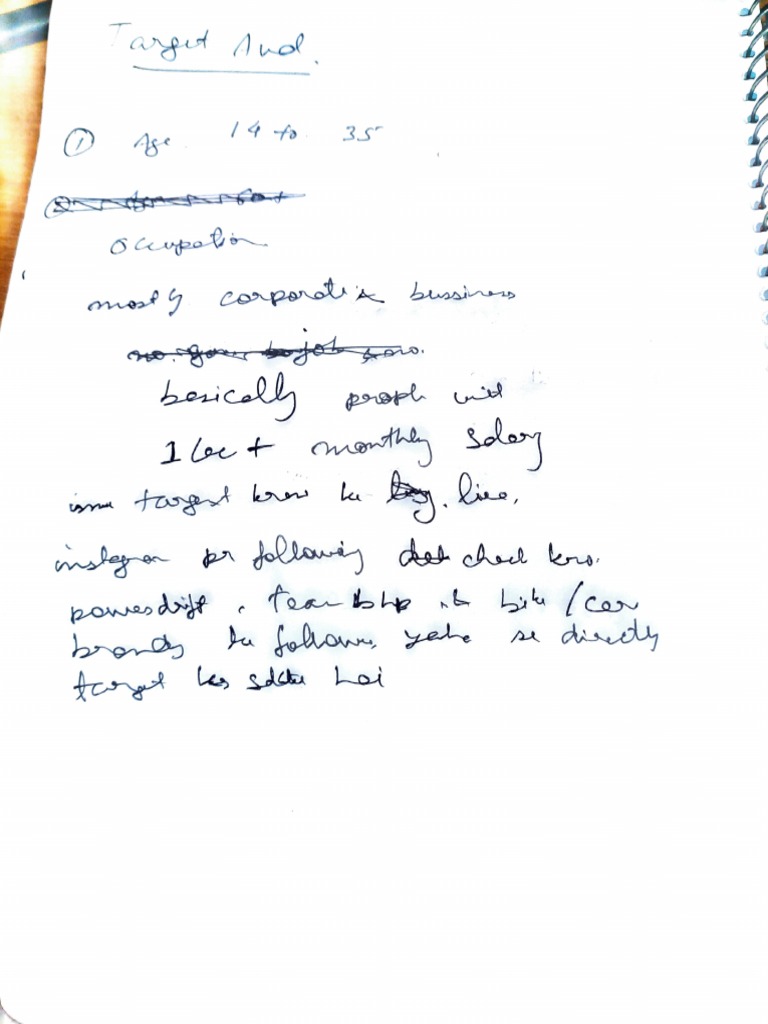 Target Aud.
① Age 14 to 35
Occupation
mostly corporate bussiness
basically people with
1 lac + monthly salary
target krne ke liee.
instagram pr following check kro.
powerdrift, team bhp bike / car
brands ke followers yaha se directly
target kr sakte hai